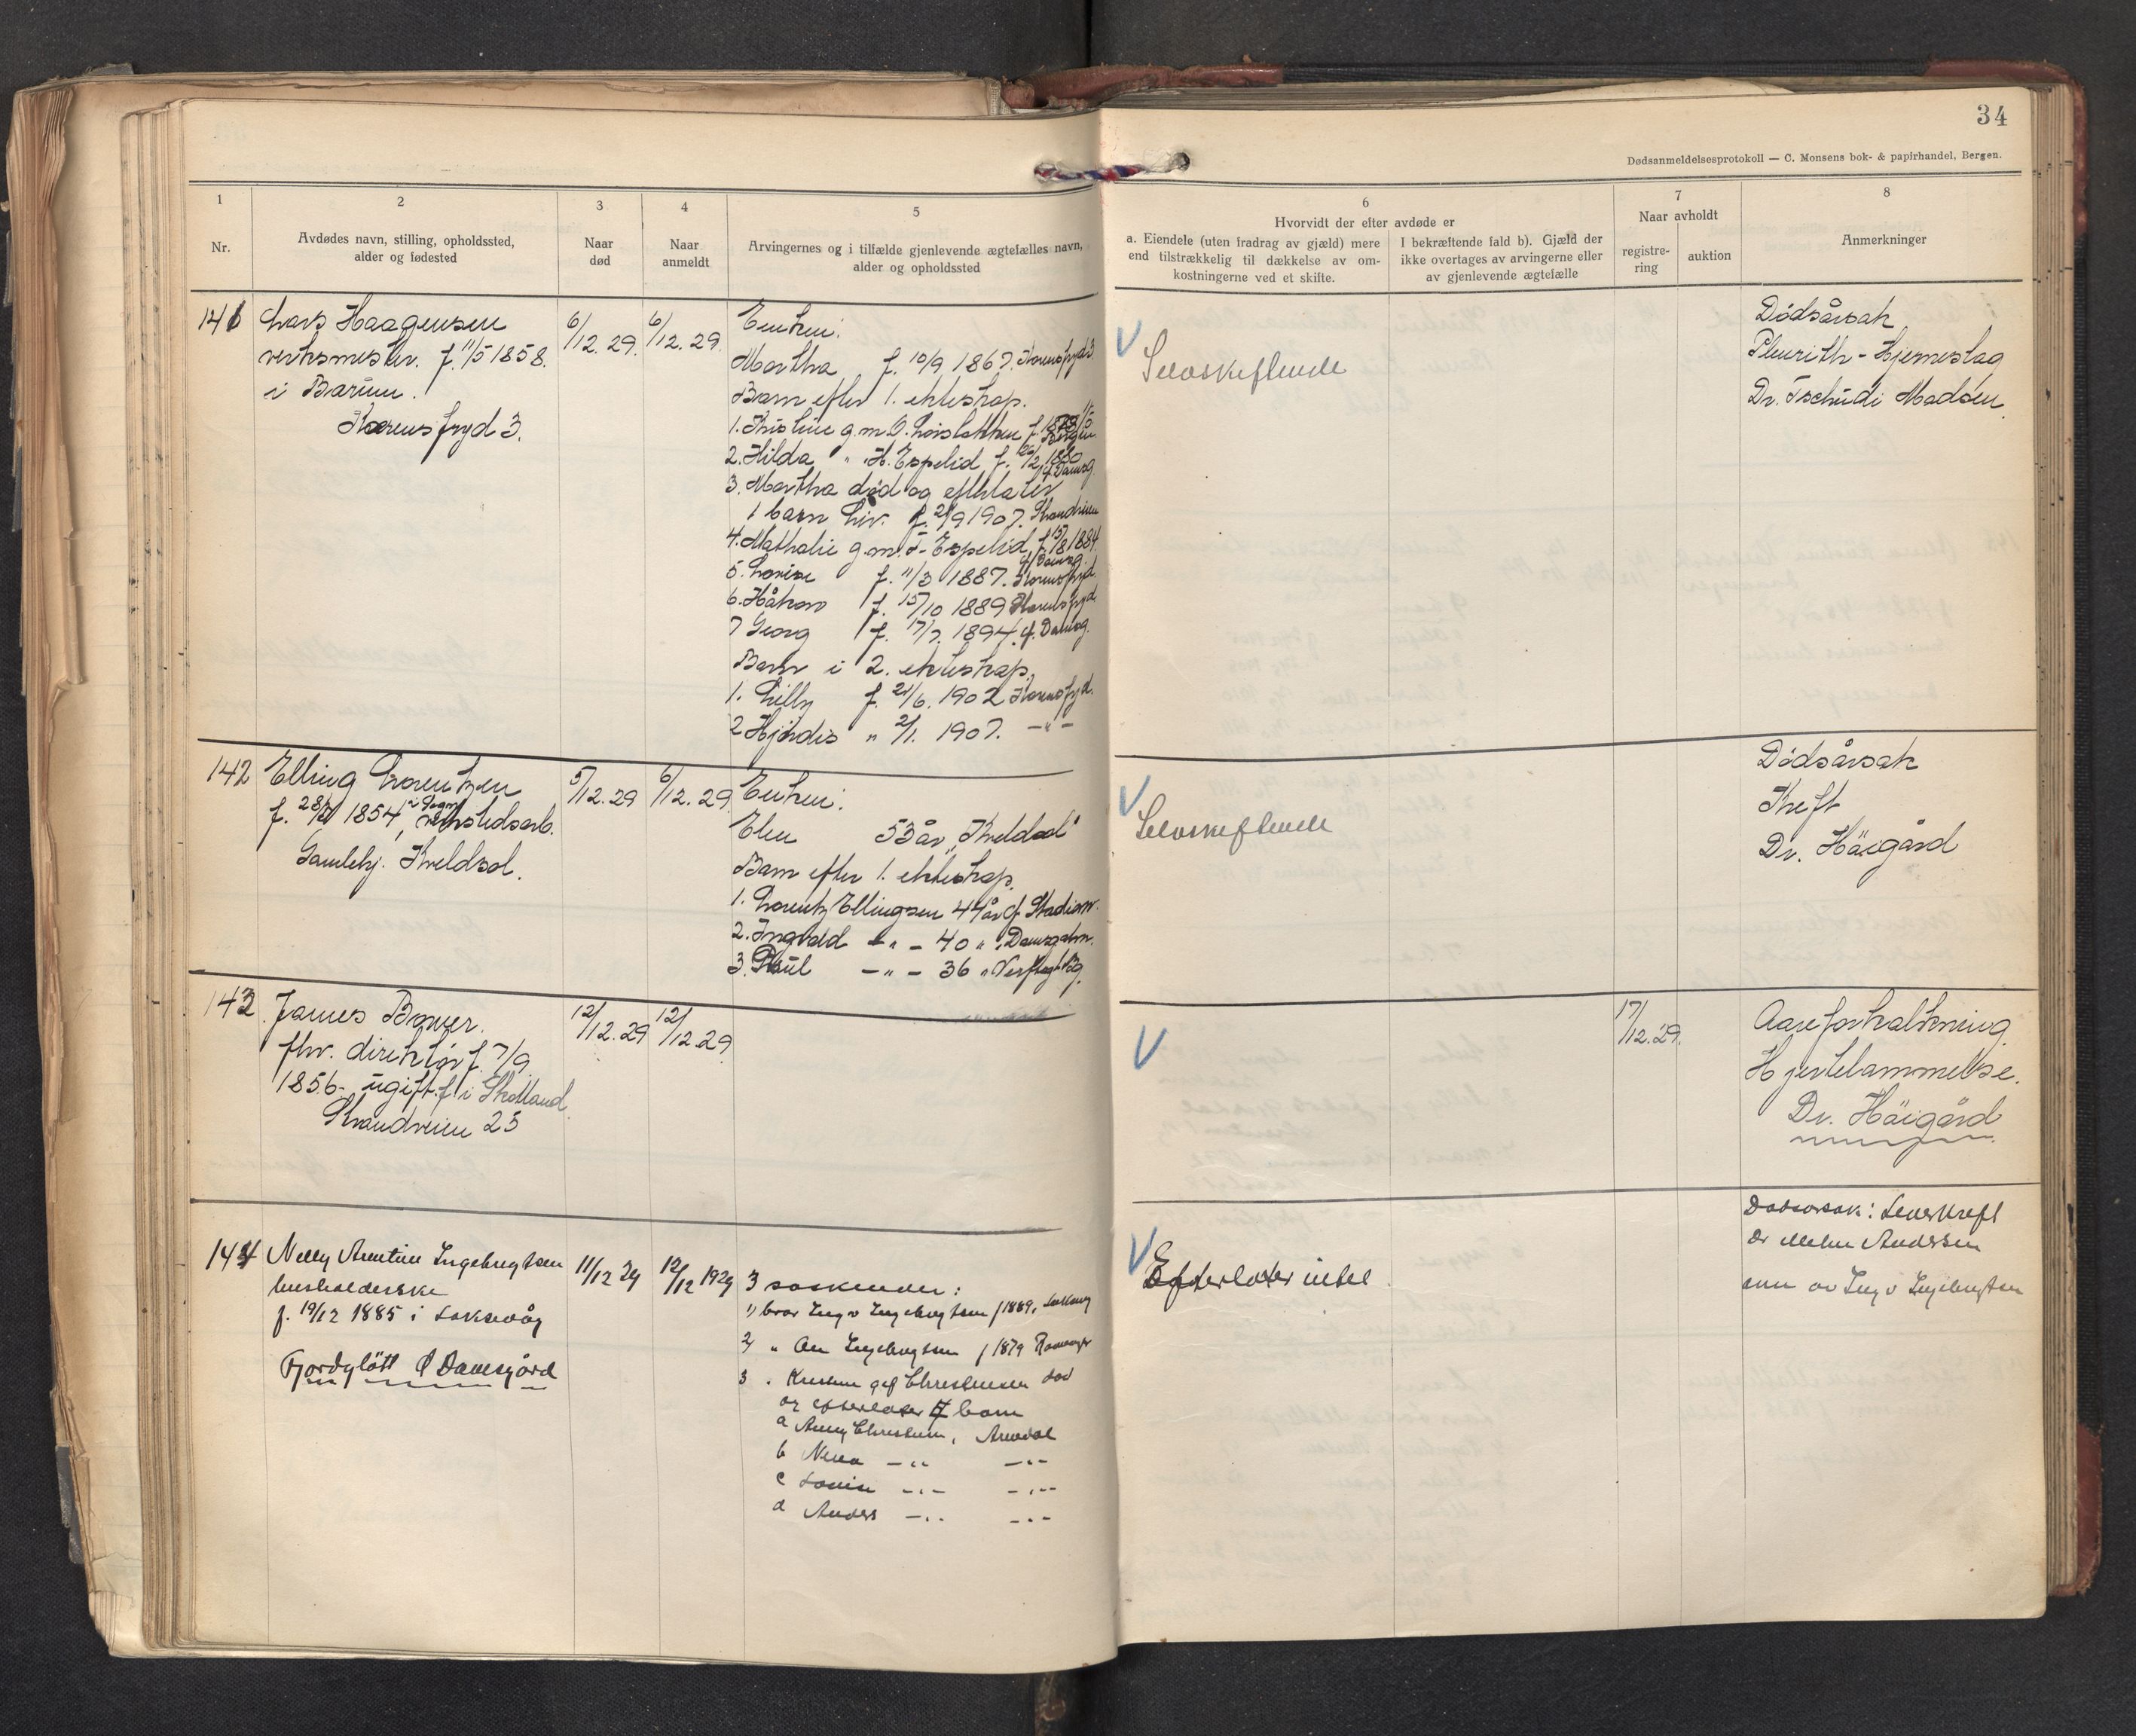 34
Dødsanmeldelsesprotokoll — C. Monsens bok- & papirhandel, Bergen.
1
Nr.
2
Avdødes navn, stilling, opholdssted,
alder og fødested
3
Naar
død
4
Naar
anmeldt
5
Arvingernes og i tilfælde gjenlevende ægtefælles navn,
alder og opholdssted
6
Hvorvidt der efter avdøde er
a. Eiendele (uten fradrag av gjæld) mere
end tilstrækkelig til dækkelse av om-
kostningerne ved et skifte.
I bekræftende fald b). Gjæld der
ikke overtages av arvingerne eller
av gjenlevende ægtefælle
7
Naar avholdt
registre-
ring
auktion
8
Anmerkninger
141
Lars Haagensen
verksmester. f. 11/5 1858.
i Bærum.
Karensfryd 3.
6/12. 29.
6/12. 29.
Enken:
Martha f. 10/9 1867. Karensfryd 3.
Barn efter 1. ekteskap.
1. Kristine g.m. O. f.
Bergen
2. Hilda " H. Espelid f. 1880
3. Martha død og efterlater
1 barn Liv. f. 2/9 1907. Strandveien
4. Mathalie g.m. F. Espelid, f. 15/8 1884.
5. Lovise f. 11/3 1887. Karensfryd
6. Håkon f. 15/10 1889 Karensfryd
7 Georg f. 17/7. 1894. Damsg.
Barn i 2. ekteskap.
1. Lilly f. 21/6. 1902 Karensfryd.
2 Hjørdis " 2/1. 1907. -"-
Selvskiftende
Dødsårsak
Pleurith - Hjerneslag
Dr. Tschudi Madsen
142
Elling Lorentzen
f. 1854, verkstedsarb.
Gamlehj. Kveldsol.
5/12. 29
6/12. 29
Enken:
Elen 53 år "Kveldsol"
Barn efter 1. ekteskap.
1. Lorentz Ellingsen 44 år
2. Ingvald -"- 40 " Damsgaardsv.
3. Paul -"- 36 "
Selvskiftende
Dødsårsak
Kreft
Dr. Håigård
143
James Bower.
fhv. direktør f. 7/9
1856- ugift. f. i Shetland
Strandveien 25
12/12. 29
12/12. 29
17/12. 29.
Aareforkalkning.
Hjertelammelse.
Dr. Håigård
144
Nelly Arentine Ingebrigtsen
husholderske
f. 19/12 1885 i Laksevåg
Fjordglött Damsgård
11/12 29
12/12 1929
3 søskender:
1) bror Ingv Ingebrigtsen f 1889, Laksevåg
2) " Ingebrigtsen f 1879
3 " gift Christensen død
og efterlater barn
a Christensen, Arendal
b -"- -"-
c Louise -"- -"-
d Anders -"- -"-
Efterlater intet
Dødsårsak: Leverkreft
Dr Andersen
av Ingv Ingebrigtsen